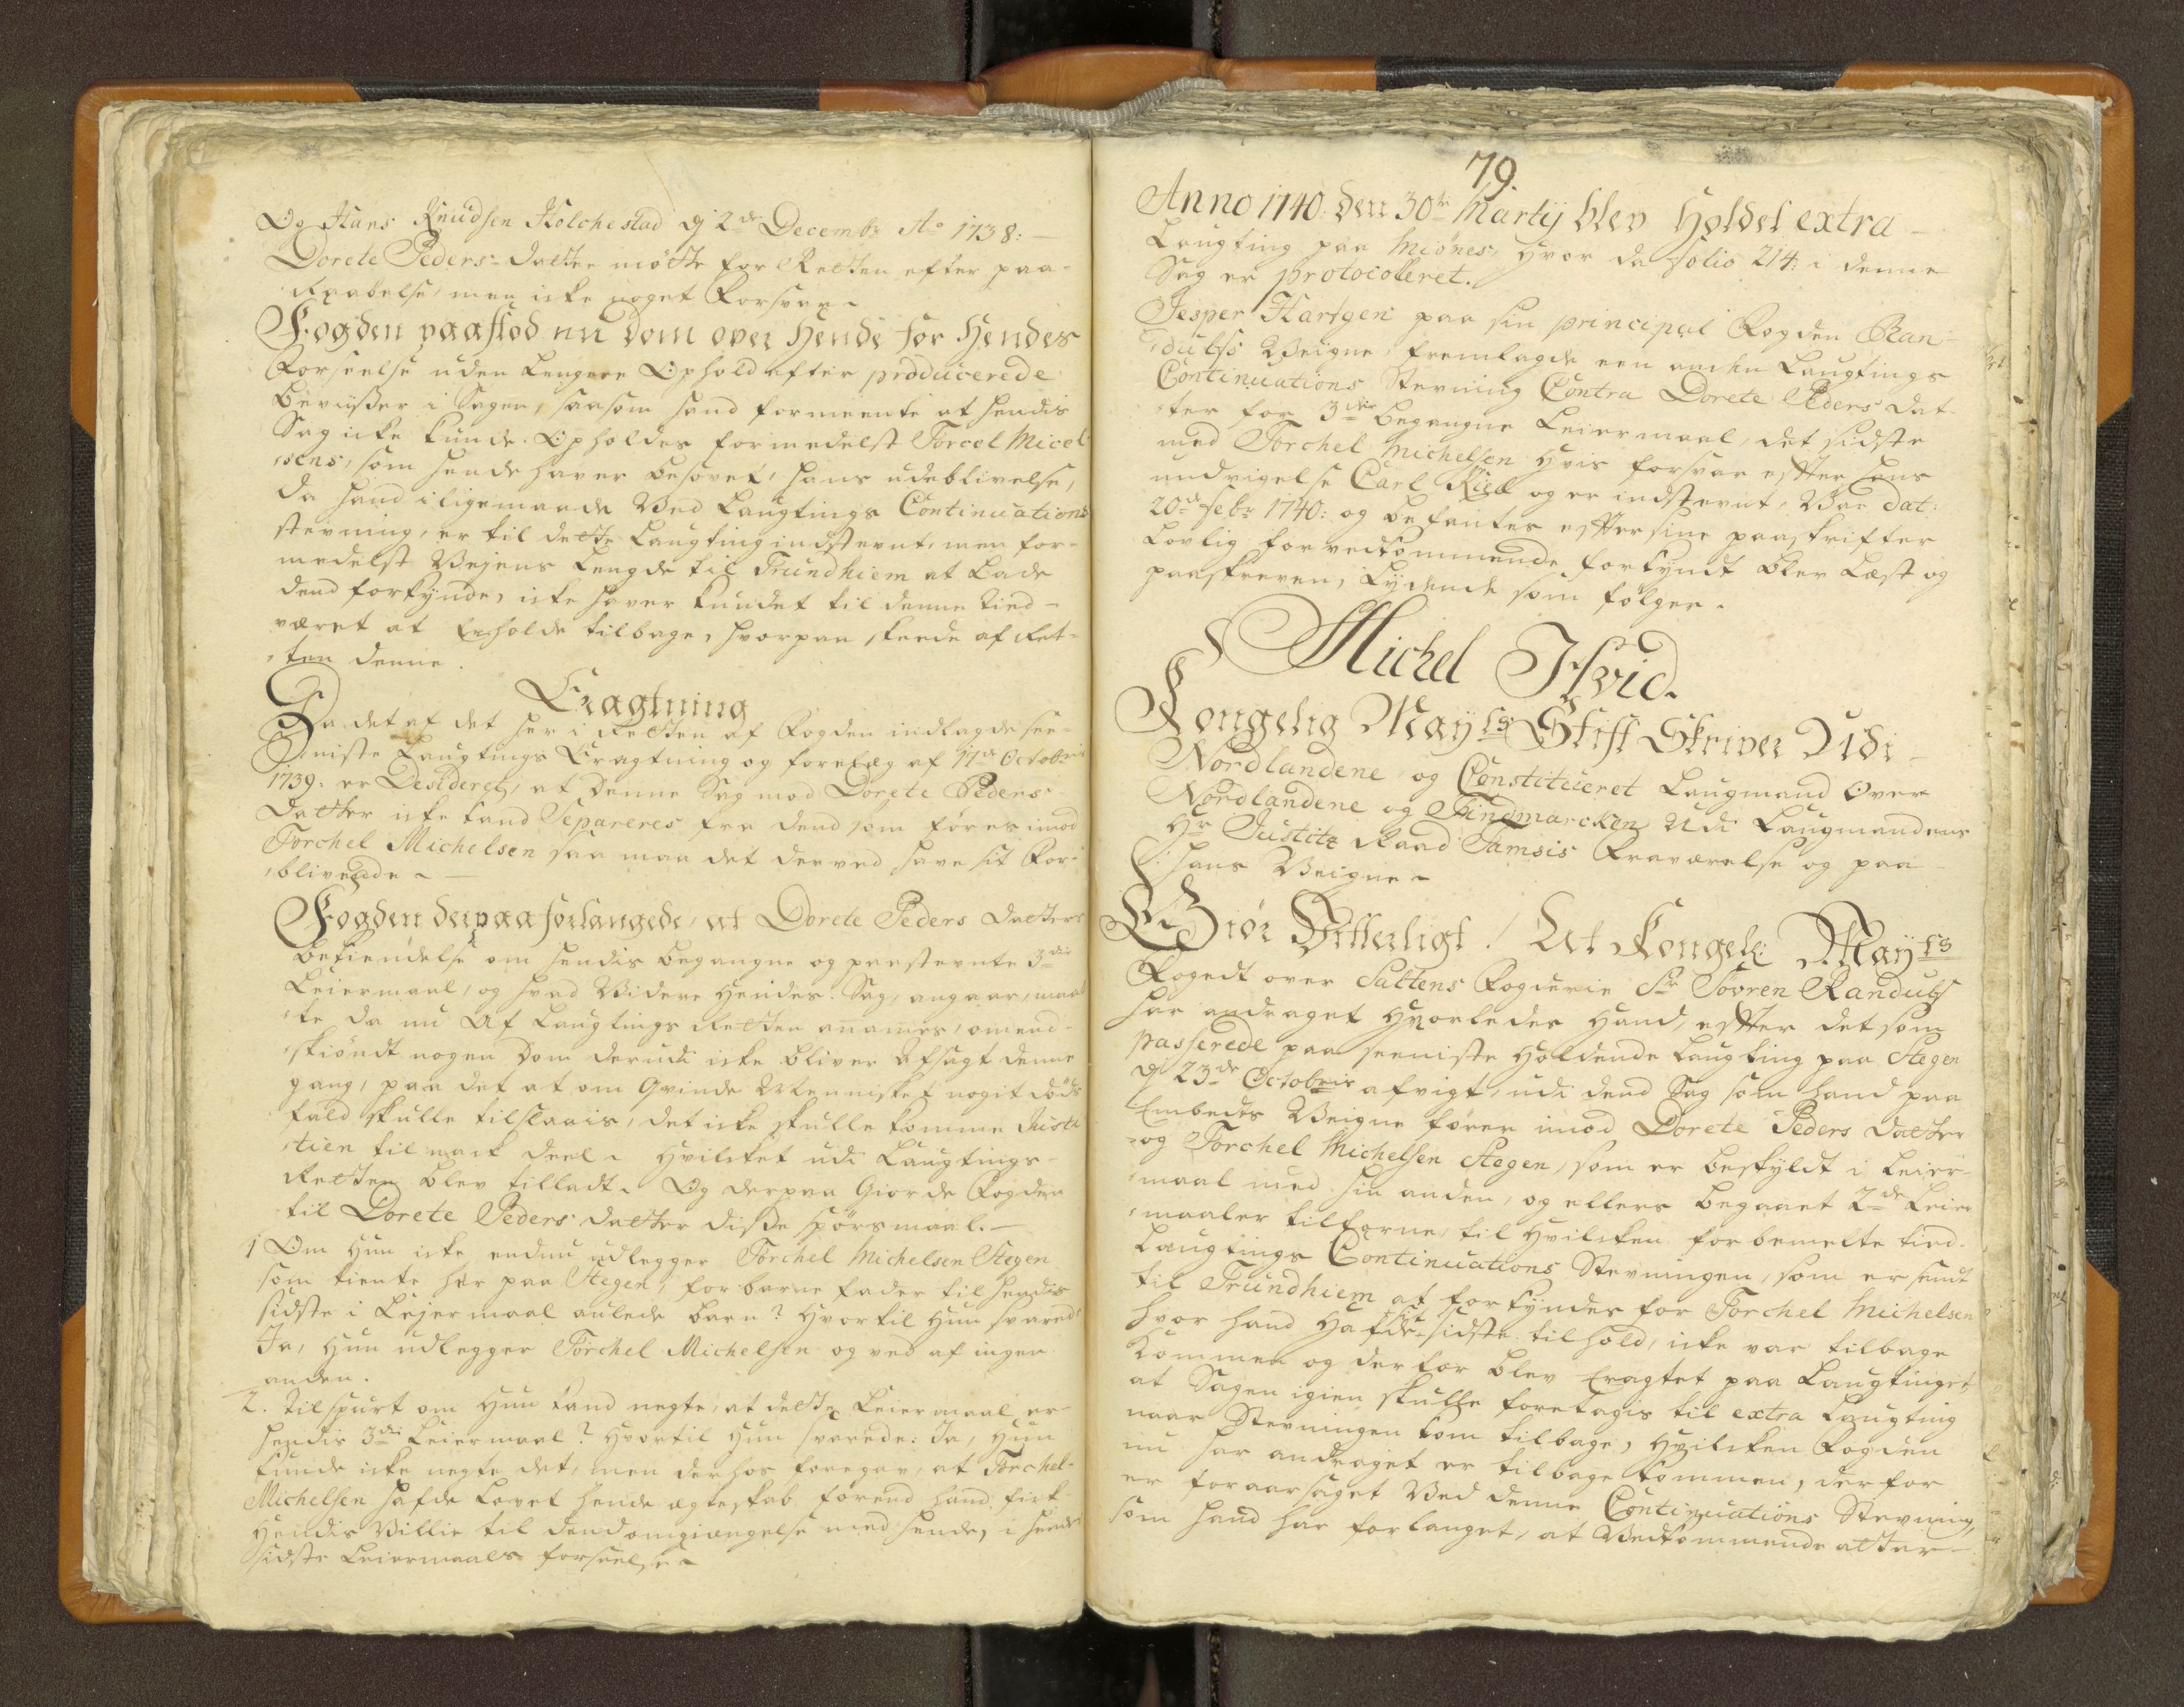 Og Hans Knudsen Kolchestad dj 2de Decembr Ao 1738:
Dorete Peders-datter møtte for Retten efter paa-
Raabelse, men icke noget Forsvar.
Fogden paastod nu dom over Hende for Hendes
Forseelse uden lengere Ophold efter producerede
beviisser i Sagen, saasom hand formeente at hendis
Sag icke kunde Opholdes formedelst Torcel Micel-
sens, som hende haver besovet, hans udeblivelse,
da hand iligemaade Ved Laugtings Continuations
stevning, er til dette Laugting indstevnt, men for-
medelst Vejens Lengde til Trundhiem at Lade
dend forkynde, icke haver kundet til denne Tied
været at Erholde tilbage, hvorpaa skeede af Ret-
ten denne.
Eragtning
Da det af det her i Retten af Fogden indlagde see-
niste Laugtings Eragtning og forelæg af 17de Octobris
1739: er Desideret, at denne Sag mod Dorete Peders
datter icke kand Separeres fra dend som føres imod
Torchel Michelsen saa maa det derved have sit For-
blivende.
Fogden derpaa forlangede, at Dorete Peders datters
bekiendelse om hendis begangne og paastevnte 3die
Leiermaal, og hvad Videre Hendes Sag, angaar, maat
te da nu Af Laugtings Retten anammes, omend-
skiøndt nogen Dom derudi icke bliver Afsagt denne
gang, paa det at om Qvinde Mennisket nogit døds
fald skulle tilslaais, det icke skulle komme Justi
tien til nack deel. Hvilcket udi Laugtings-
Retten blev tilladt. Og derpaa Giorde Fogden
til Dorete Peders datter disse spørsmaal.
1 Om Hun icke endnu udlegger Torchel Michelsen Stegen
som tiente her paa Stegen, for barne fader til hendis
sidste i Lejermaal aulede barn? Hvortil Hun svarede
Ja, Hun udlegger Torchel Michelsen og ved af ingen
anden.
2. Tilspurt om Hun kand negte, at dette Leiermaal er
hendis 3die Leiermaal? Hvortil Hun svarede: Ja, Hun
kunde icke negte det, men derhos foregav, at Torchel
Michelsen hafde Lovet hende ægteskab førend hand fick
Hendis Villie til dend omgiængelse med hende, i hendes
sidste Leiermaals forseelse.
79.
Anno 1740: den 30te Martij blev Holdet extra
Laugting paa Miønes, Hvor da folio 214: i denne
Sag er protocoleret.
Jesper Hartgen paa sin principal Fogden Ran-
dulfs Veigne, fremlagde een anden Laugtings
Continuations Stevning Contra Dorete Peders dat-
ter for 3die begangne Leiermaal, det sidste
med Torchel Michelsen Hvis forsvar efter hans
undvigelse Carl Kiel og er indstevnt, Var dat:
20de Febr 1740: og befantes efter sine paaskrifter
Lovlig for vedkommende forkyndt blev Læst og
paaskreven, Lydende som følger.
Michel Hvid.
Kongelig Mayts Stift Skriver Udi
Nordlandene og Constitueret Laugmand Over
Nordlandene og Findmarcken Udi Laugmandens
Hr Justitz Raad Tamsis Fraværelse og paa
hans Veigne.
Giør Vitterligt! At Kongel: Mayts
Fogedt over Saltens Fogderie Sr Søvren Randulf
har andraget Hvorledes Hand, efter det som
passerede paa seeniste Holdende Laugting paa Stegen
dj 23de Octobris afvigt, udi dend Sag som hand paa
Embedes Veigne fører imod Dorete Peders datter
og Torchel Michelsen Stegen, som er beskyldt i Leier-
maal med hin anden, og ellers begaaet 2de Leier
maaler tilforne, til Hvilcken forbemelte tied
Laugtings Continuations Stevningen, som er sendt
til Trundhiem at forkyndes for Torchel Michelsen
hvor hand Hafde sit sidste tilhold, icke var tilbage
Kommen og derfor blev Eragtet paa Laugtinget
at Sagen igien skulle foretagis til extra Laugting
naar Stevningen kom tilbage, Hvilcken Fogden
nu har andraget er tilbage kommen, derfor
er foraarsaget Ved denne Continuations Stevning,
som hand har forlanget, at Vedkommende atter